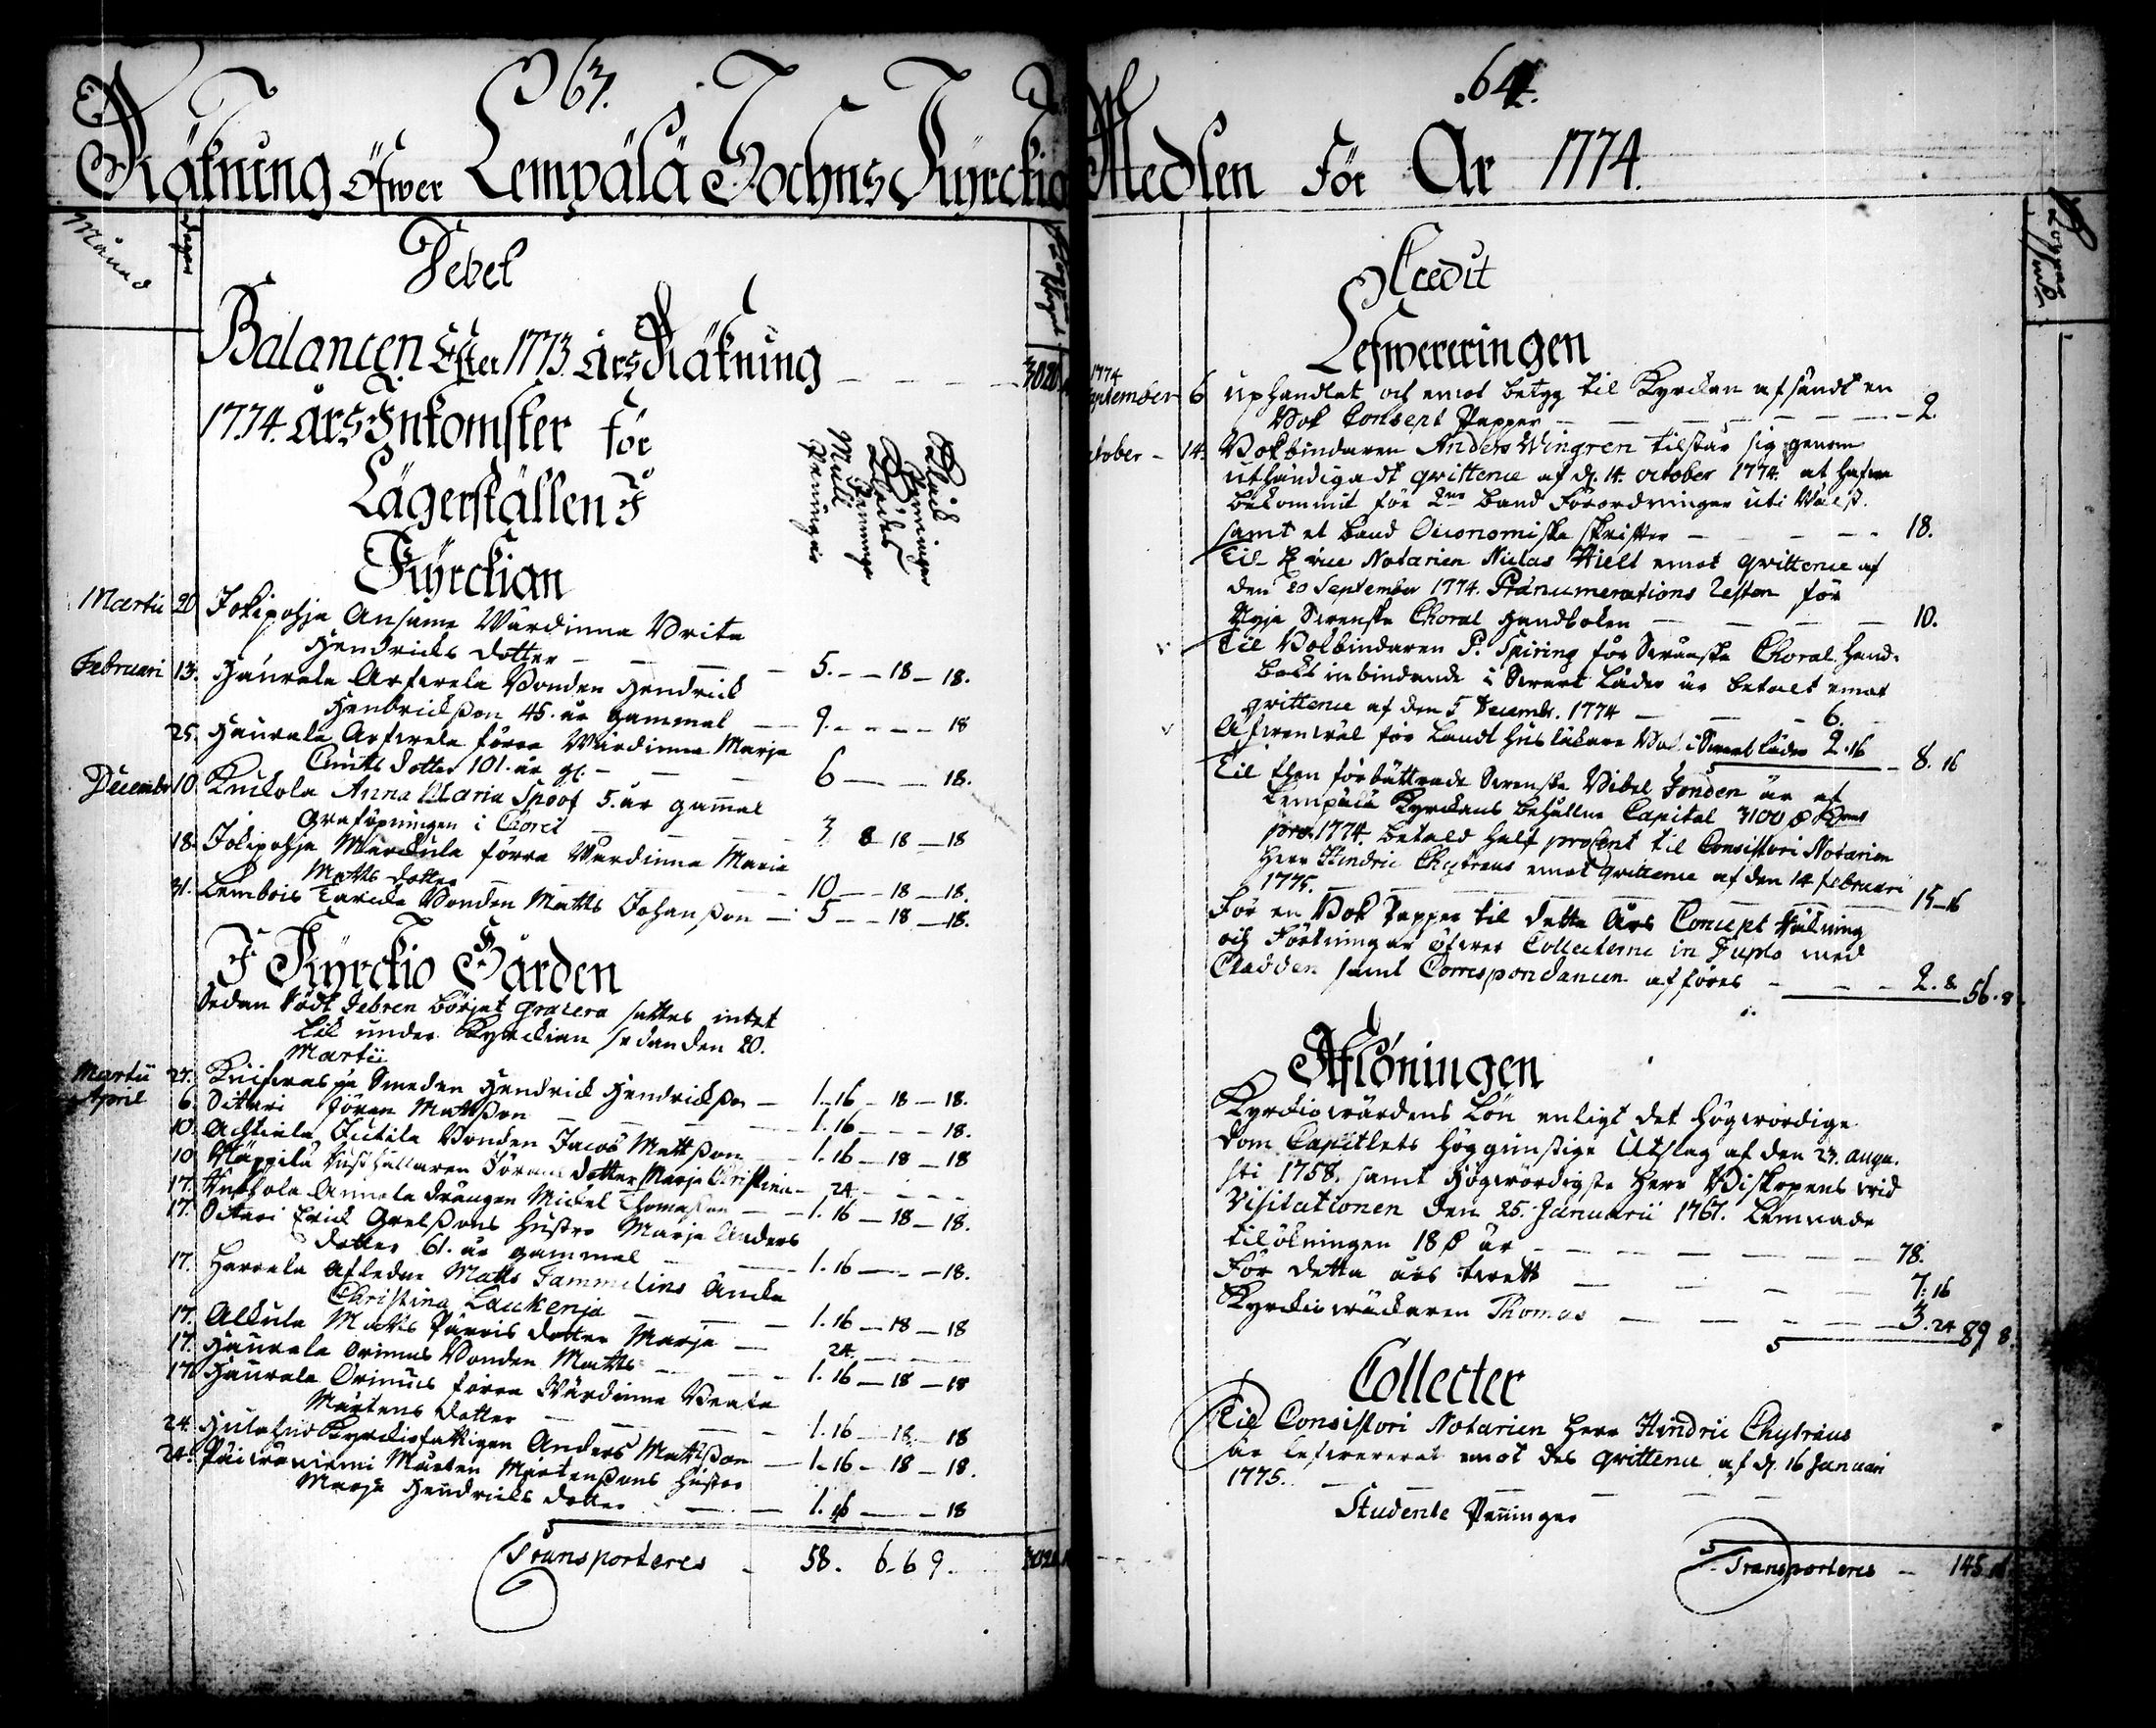 63.
Räkning Öfwer Lempälä Sochns Kyrckio
Månad
Dagar
Debet
Balancen Efter 1773. års Räkning — — — 3020
1774. års Inkomster för
Lägerställen I
Kyrckian
Penningar
Mull Penningar
Klocke Penningar
Martii 20 Jokipohja Ansame Wärdinna Brita
Hendricks dotter — — — 5. — 18 — 18.
Februari 13. Haurala Arfwela Bonden Hendrick
Hendrickßon 45. år gammal — — 9. — — 18
25. Haurala Arfwela förra Wärdinna Marja
Cnuts dotter 101. år gl. — — — 6 — — 18.
Decembr 10 Kuckola Anna Maria Spoof 5. år gamal
Graföpningen i Choret — — 3 8 18 — 18
18. Jokipohja Marckula förra Wärdinna Maria
Matts dotter — — — 10 — 18 — 18.
31. Lembois Bonden Matts Johanßon — 5 — 18 — 18.
I Kyrckio Gården
Sedan Rödt Febren börjat gracera sattes intet
Lik under Kyrckian sedan den 20.
Martii
Martii 27. Smeden Hendrick Hendrickßon — 1. 16 — 18 — 18.
April 6. Sotari Jören Mattßon — — — 1. 16 — — 18.
10. Achtiala Jutila Bonden Jacob Mattßon — 1. 16 — 18 — 18
10 dotter Marja Christina — 24 — — —
17. Annola drängen Mickel Thomaßon — — 1. 16 — 18 — 18.
17. Sotari Erick Grelßons hustro Marja Anders
dotter 61. år gammal — — 1. 16 — — 18.
17. Herrala Afledne Matts Sammelins Äncka
Christina Lauckenia — — 1. 16 — 18 — 18
17. Alkula Matts dotter Marja — 24 — — —
17. Haurala Orimus Bonden Matts — — 1. 16 — 18 — 18
17. Haurala Orimus förra Wärdinna Beata
Mårtens dotter — — — 1. 16 — 18 — 18
24. Kyrckiofattigen Anders Mattßon — 1. 16 — 18 — 18.
24. Päiwäniemi Mårten Mårtenßons hustro
Marja Hendricks dotter — — 1. 16 — — 18
Transporteres — 58. 6. 6 9. 3020
64.
Medlen För År 1774.
Credit
Lefwereringen
1774
September 6 uphandlat och emot betyg til Kyrckan afsändt en
Bok Consept Papper — — — — — 2.
October — 14. Bokbindaren Anders Wingren tilstår sig genom
uthändigadt qvittence af d. 14. October 1774. at hafwa
bekommit för 2ne Band Förordningar uti
samt et Band Oeconomiska skrifter — — — 18.
Til vice Notarien Niclas Hielt emot qvittence af
den 20 September 1774. Pränumerations resten för
Nyja Swenska Choral handboken — — — 10.
Til Bokbindaren P. Spiring för Swenska Choral hand-
boks inbindande i Swart Läder är betalt emot
qvittence af den 5 Decembr. 1774 — — — 6.
Afwenwäl för Landt Hus läkare Bok i Swart läder 2. 16 — 8. 16
Til then förbättrade Swenska Bibel Fonden är af
Lempälä Kyrckans behållne Capital 3100
pro 1774. betald half procent til Consistori Notarien
Herr Hindric Chytræus emot qvittence af den 14 februari
1775. — — — — — 15 — 16
För en Bok Papper til detta års Concept Räkning
och Förtningar öfwer Collecterne in Duplo med
Cladden samt Correspondancen afföres — — — 2. 8 56. 8
Aflöningen
Kyrckiowärdens Lön enligt det högwördige
Dom Capitlets höggunstige Utslag af den 23. augu-
sti 1758. samt högwördigste Herr Biskopens wid
Visitationen den 25. Januarii 1767. lemnade
tilökningen 18 år — — — — — 78.
För detta års — — — 7. 16
Kyrckiowäckaren Thomas — — — — 3. 24 89 8.
Collecter
Til Consistori Notarien Herr Hindric Chytræus
är lefwererat emot des qvittence af d. 16 Januari
1775. — — — — —
Studente Peninger
Transporteres — 145. 16